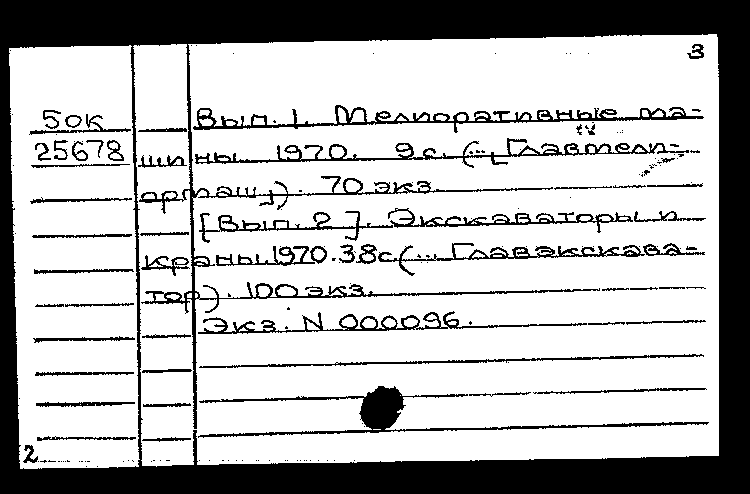 3
50к Вып. 1. Мелиоративные ма-
25678 шины. 1970. 9 с. (... Главмели-
ормаш). 70 экз.
[Вып. 2]. Экскаваторы и
краны. 1970. 38с (... Главэкскава-
тор). 100 экз.
Экз. N 000096.
2